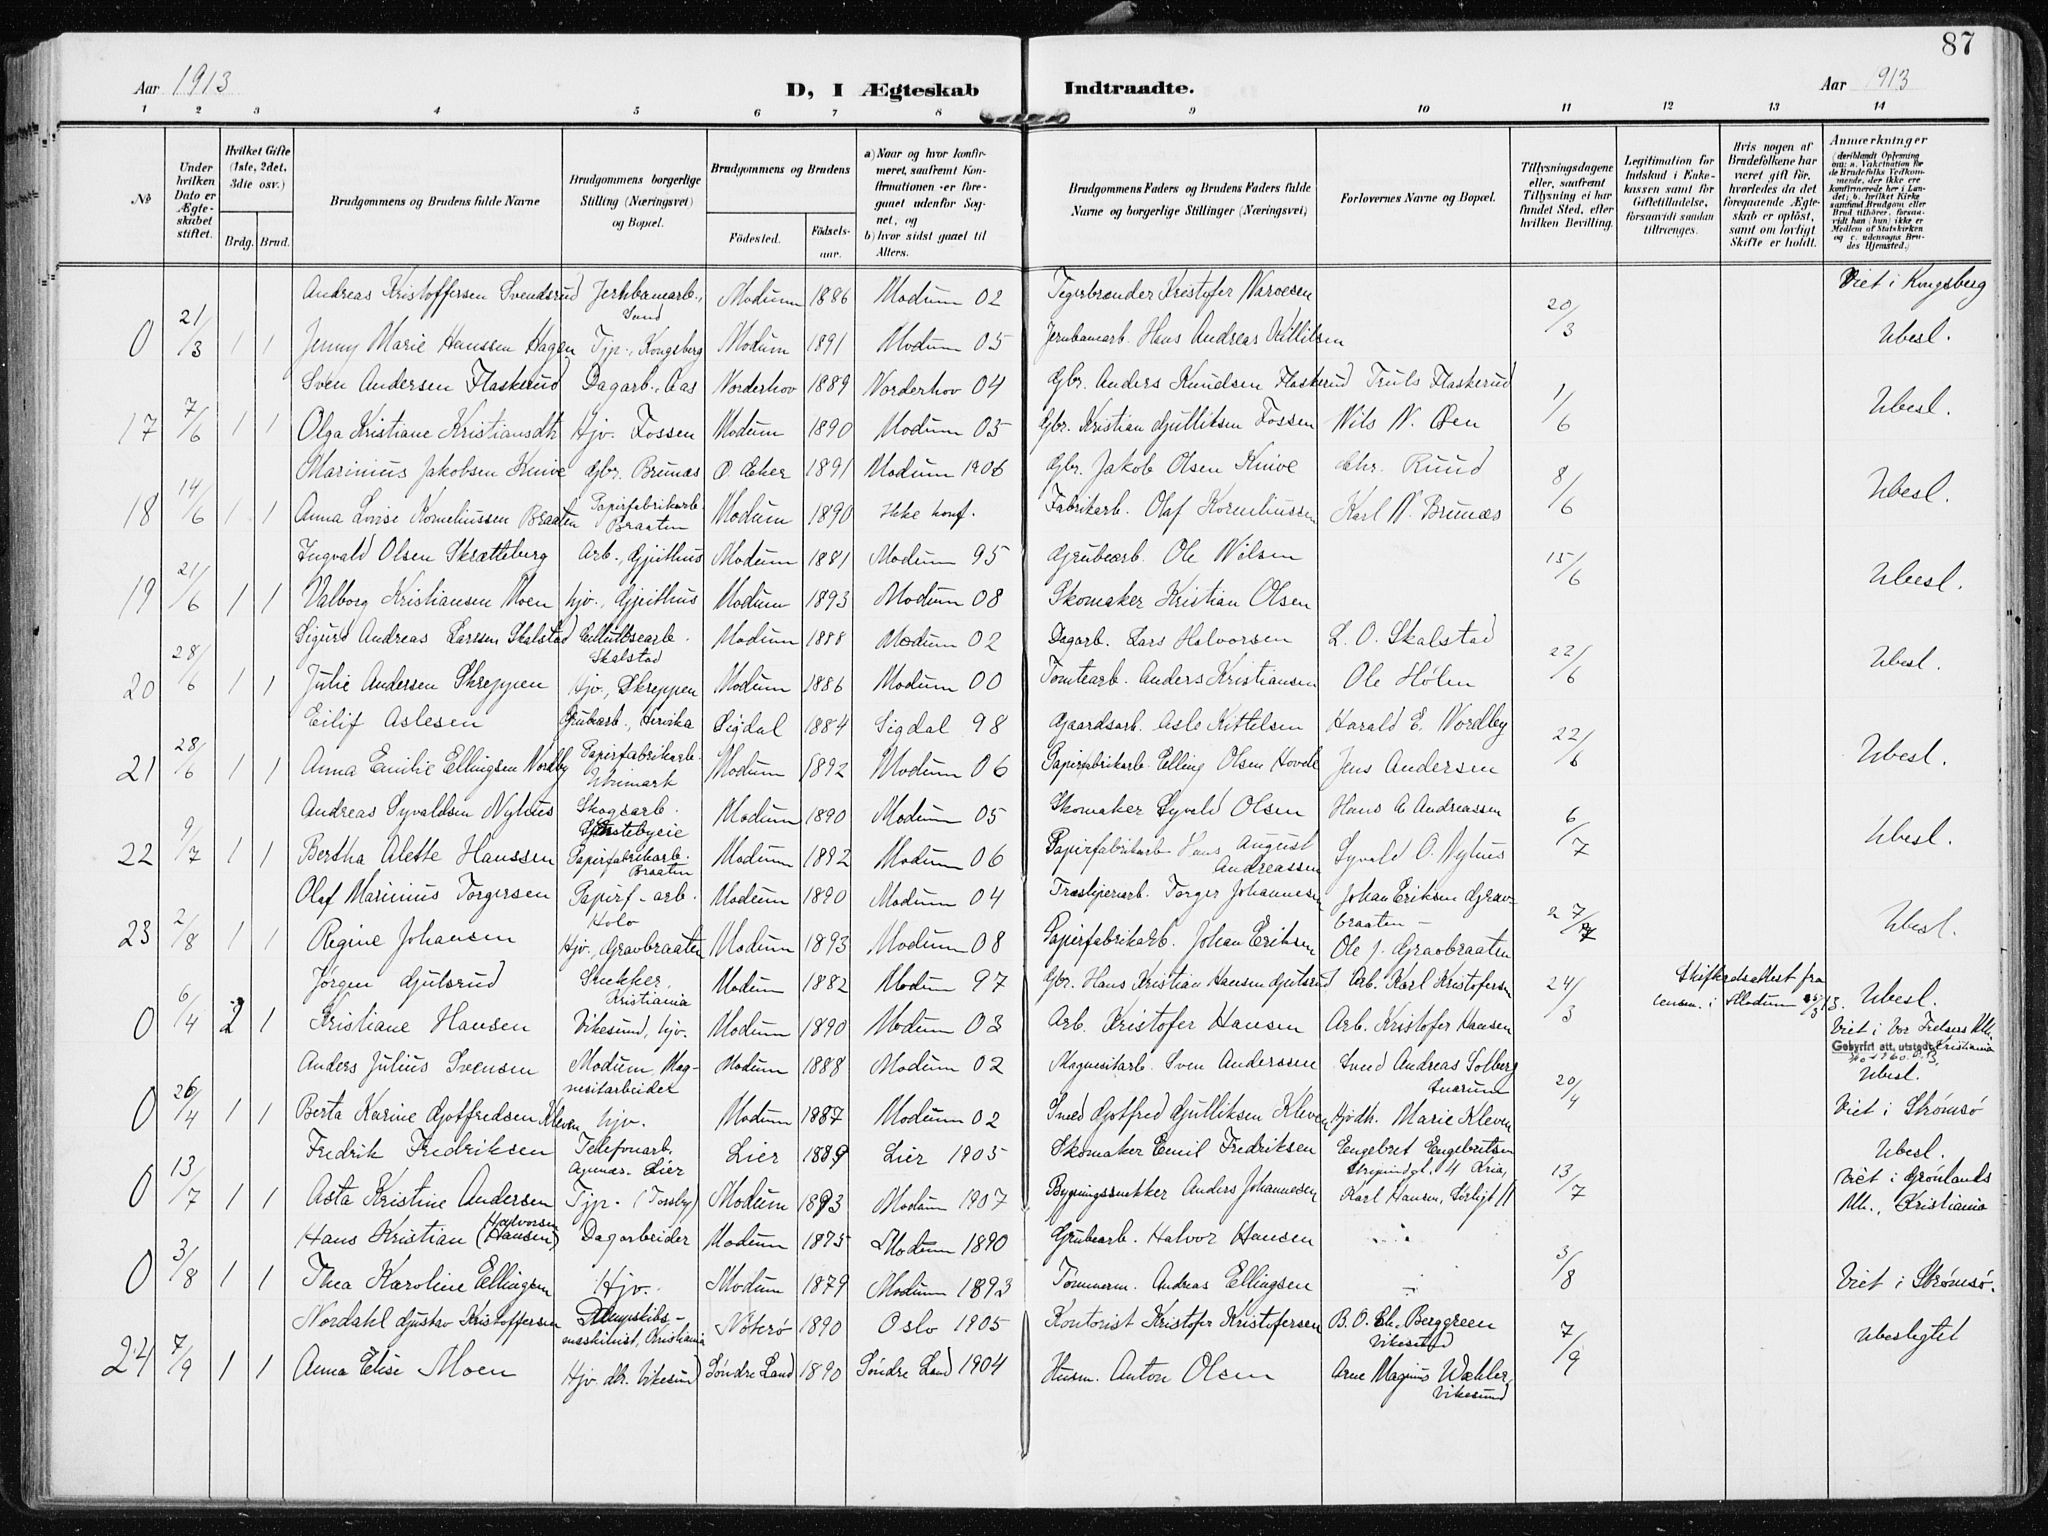 87
Aar 1913 D, I Ægteskab Indtraadte. Aar 1913
1 2 3 4 5 6 7 8 9 10 11 12 13 14
No
Under hvilken Dato er Ægteskabet stiftet.
Hvilket Gifte (1ste, 2det, 3die osv.)
Brdg. Brud.
Brudgommens og Brudens fulde Navne
Brudgommens borgerlige Stilling (Næringsvei) og Bopæl.
Brudgommens og Brudens
Fødested. Fødselsaar.
a) Naar og hvor konfirmeret, saafremt Konfirmationen er foregaaet udenfor Sognet, og
b) hvor sidst gaaet til Alters.
Brudgommens Faders og Brudens Faders fulde Navne og borgerlige Stillinger (Næringsvei)
Forlovernes Navne og Bopæl.
Tillysningsdagene eller, saafremt Tillysning ei har fundet Sted, efter hvilken Bevilling.
Legitimation for Indskud i Enkekassen samt for Giftetilladelse, forsaavidt saadan tiltrænges.
Hvis nogen af Brudefolkene har været gift før, hvorledes da det foregaaende Ægteskab er opløst, samt om lovligt Skifte er holdt.
Anmærkninger (deriblandt Oplysning om: a. Vakcination for de Brudefolks Vedkommende, der ikke ere konfirmerede her i Landet; b. hvilket Kirkesamfund Brudgom eller Brud tilhører, forsaavidt han (hun) ikke er Medlem af Statskirken og c. udensogns Brudes Hjemsted.)
Andreas Kristoffersen Svendsrud Jernbanearb., Sund Modum 1886 Modum 02 Kristofer Narvesen Viet i Kongsberg
0 21/3 1 1 Jenny Marie Hanssen Hagen Tjp., Kongsberg Modum 1891 Modum 05 Jernbanearb. Hans Andreas Killilsen 20/3 Ubesl.
Sven Andersen Flaskerud Dagarb., Aas Norderhov 1889 Norderhov 04 Gbr. Anders Knudsen Flaskerud Truls Flaskerud
17 7/6 1 1 Olga Kristiane Kristiansdtr Hjv. Fossen Modum 1890 Modum 05 Gbr. Kristian Gulliksen Fossen Nils N. Øen 1/6 Ubesl.
Marinius Jakobsen Knive Gbr. Brunæs Ø. Eker 1891 Modum 1906 Gbr. Jakob Olsen Knive Chr. Ruud
18 14/6 1 1 Anna Lovise Korneliussen Braaten Papirfabrikarb. Braaten Modum 1890 Ikke konf. Fabrikarb. Olaf Korneliussen Karl N. Brunæs 8/6 Ubesl.
Ingvald Olsen Skrætteberg Arb., Gjeithus Modum 1881 Modum 95 Grubearb. Ole Nilsen
19 21/6 1 1 Valborg Kristiansen Moen hjv., Gjeithus Modum 1893 Modum 08 Skomaker Kristian Olsen 15/6 Ubesl.
Sigurd Andreas Larssen Skalstad Cellulosearb. Skalstad Modum 1888 Modum 02 Dagarb. Lars Halvorsen L. O. Skalstad
20 28/6 1 1 Julie Andersen Skreppen Hjv., Skreppen Modum 1886 Modum 00 Tomtearb. Anders Kristiansen Ole Hølen 22/6 Ubesl.
Eilif Aslesen Grubearb., Hervika Sigdal 1884 Sigdal 98 Gaardsarb. Asle Kittelsen Harald E. Nordby
21 28/6 1 1 Anna Emilie Ellingsen Nordby Papirfabrikarb. Modum 1892 Modum 06 Papirfabrikarb. Elling Olsen Hovde Jens Andersen 22/6 Ubesl.
Andreas Syvaldsen Nyhus Skogsarb. Modum 1890 Modum 05 Skomaker Syvald Olsen Hans A Andreassen
22 9/7 1 1 Bertha Alette Hanssen Papirfabrikarb. Braaten Modum 1892 Modum 06 Papirfabrikarb Hans August Andreassen Syvald O. Nyhus 6/7 Ubesl.
Olaf Marinius Torgersen Papirf-arb. Holo Modum 1890 Modum 04 Træsliperiarb. Torger Johannesen Johan Eriksen Gravbraaten
23 2/8 1 1 Regine Johansen Hjv., Gravbraaten Modum 1893 Modum 08 Papirfabrikarb. Johan Eriksen Ole J. Gravbraaten 27/7 Ubesl.
Jørgen Gjutsrud Snekker, Kristiania Modum 1882 Modum 97 Gbr. Hans Kristian Hansen Gjutsrud Arb. Karl Kristofersen Skifteadsattest fra
0 6/4 2 1 Kristiane Hansen Vikesund, hjv. Modum 1890 Modum 03 Arb. Kristofer Hansen Arb. Kristofer Hansen 24/3 lensm. i Modum 13. Ubesl.
Viet i Vor Frelsers Kk. Kristiania
Gebyrfri att. utstedt
Anders Julius Svensen Modum, Magnesitarbeider Modum 1888 Modum 02 Magnesitarb. Sven Anderssen Svend Andreas Solberg Snarum Ubesl.
0 26/4 1 1 Berta Karine Gotfredsen Kleven hjv. Modum 1887 Modum 02 Smed Gotfred Gulliksen Kleven Hjdh. Marie Kleven 20/4 Viet i Strømsø
Fredrik Fredriksen Telefonarb. Lier Lier 1889 Lier 1905 Skomaker Emil Fredriksen Engebret Engebritsen Ubesl.
0 13/7 1 1 Asta Kristine Andersen Tjp. (Torsby) Modum 1893 Modum 1907 Bygningssnekker Anders Johannesen Karl Hansen, 13/7 Viet i Grønlands Kk., Kristiania
Hans Kristian (Halvorsen Hansen) Dagarbeider Modum 1875 Modum 1890 Grubearb. Halvor Hansen
0 3/8 1 1 Thea Karoline Ellingsen Hjv. Modum 1879 Modum 1893 Tømmerm. Andreas Ellingsen 3/8 Viet i Strømsø.
Nordahl Gustav Kristoffersen Dampskibsmaskinist, Kristiania Nøterø 1890 Oslo 1905 Kontorist Kristofer Kristofersen B. O. Ch. Berggreen Vikesund Ubeslegtet
24 7/9 1 1 Anna Elise Moen Hjv. Vikesund Søndre Land 1890 Søndre Land 1904 Husm. Anton Olsen Arne Magnus Wæhler, Vikesund 7/9